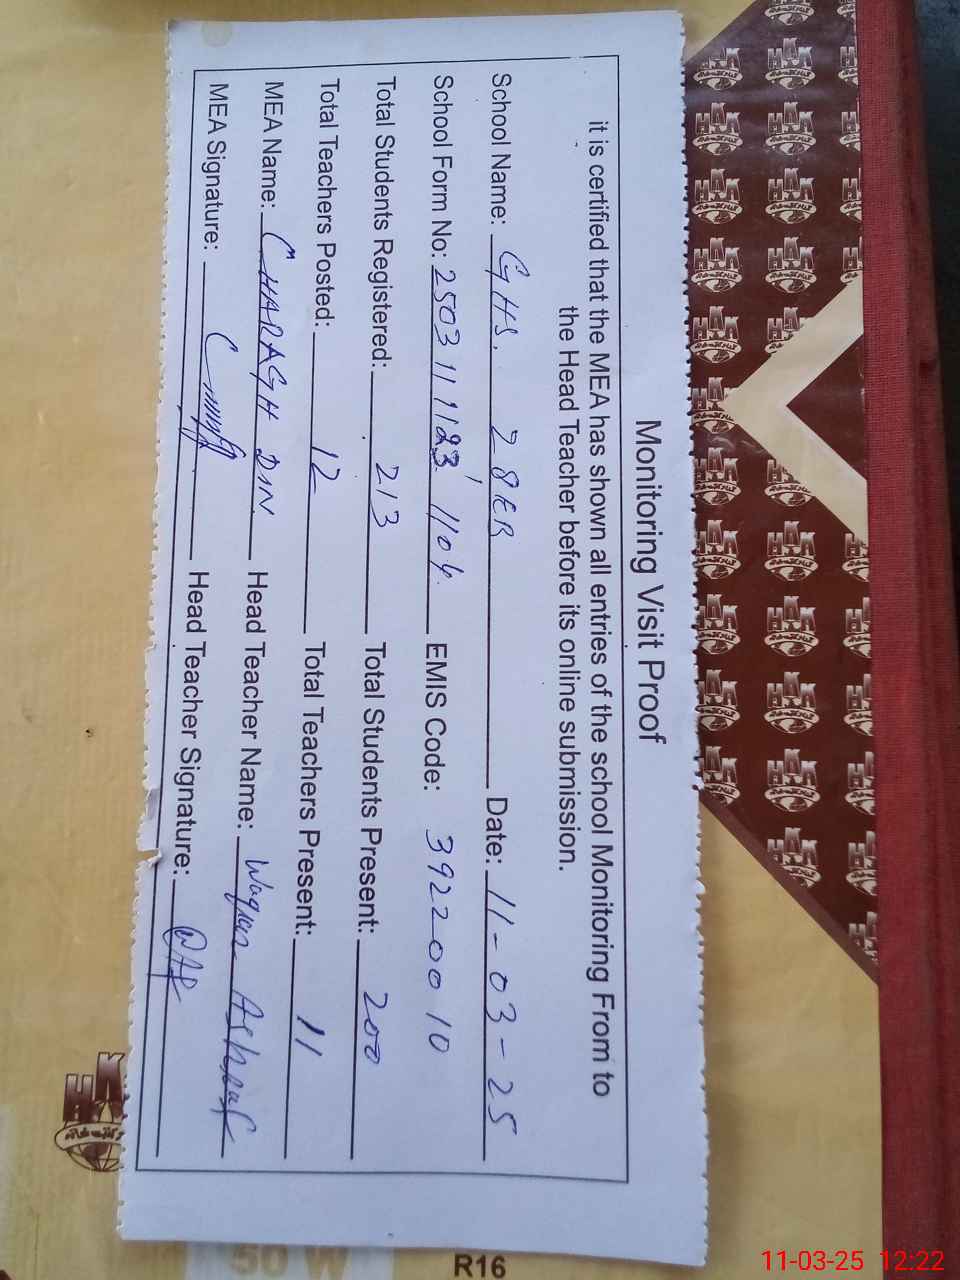 Monitoring Visit Proof
it is certified that the MEA has shown all entries of the school Monitoring From to
the Head Teacher before its online submission.
School Name: GHS. 28ER Date: 11-03-25
School Form No: 2503111123 1104 EMIS Code: 39220010
Total Students Registered: 213 Total Students Present: 200
Total Teachers Posted: 12 Total Teachers Present: 11
MEA Name: CHARAGH DIN Head Teacher Name: Waqas Ashraf
MEA Signature: Head Teacher Signature:
50 W
R16
11-03-25 12:22